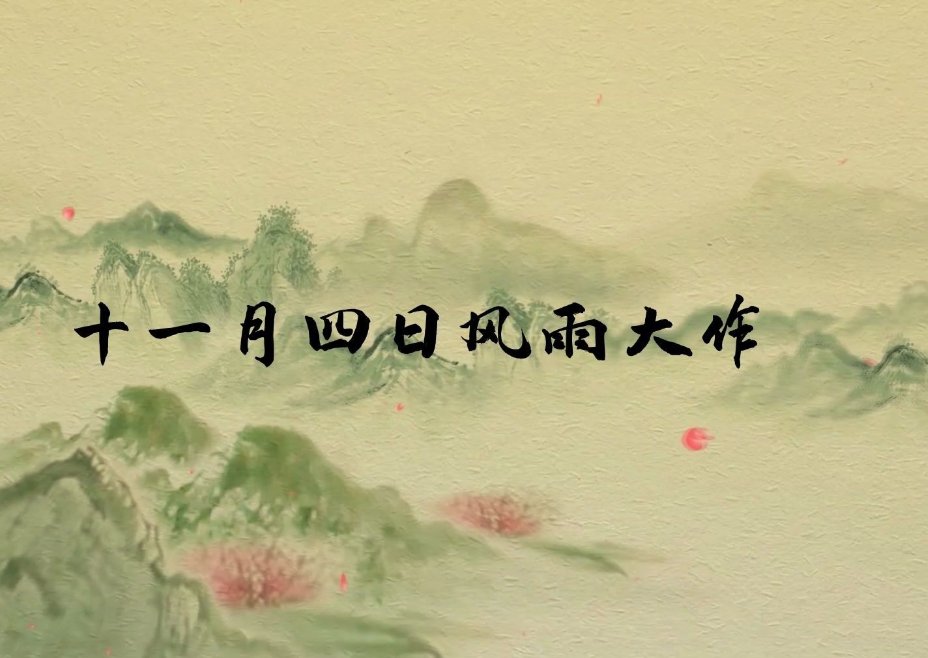 十一月四日风雨大作